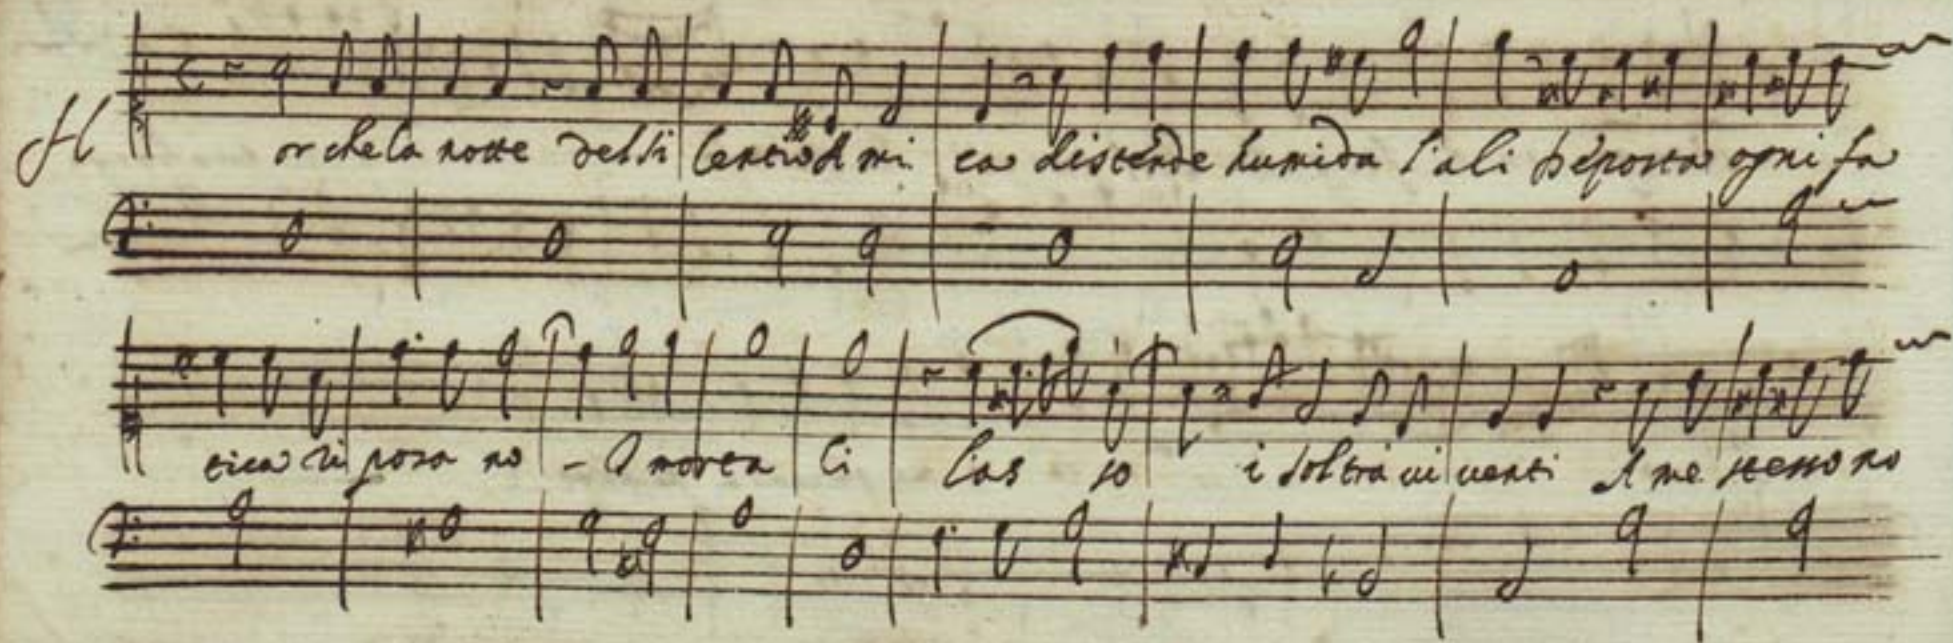 Hor che la notte del si lentio A mi ca distende humida l'ali deposta ogni fa
tica ri posa no - I morta li las so i sol tra vi venti A me stesso no